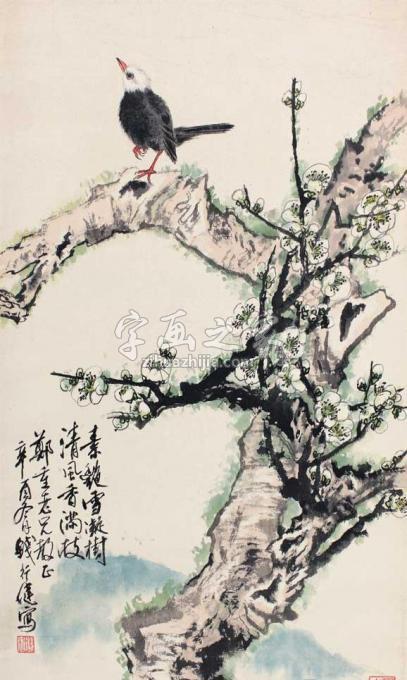 字画之家
www.zihuazhijia.com
素艷雪凝樹
清風香滿枝
鄭重老兄教正
辛酉冬月錢行健寫